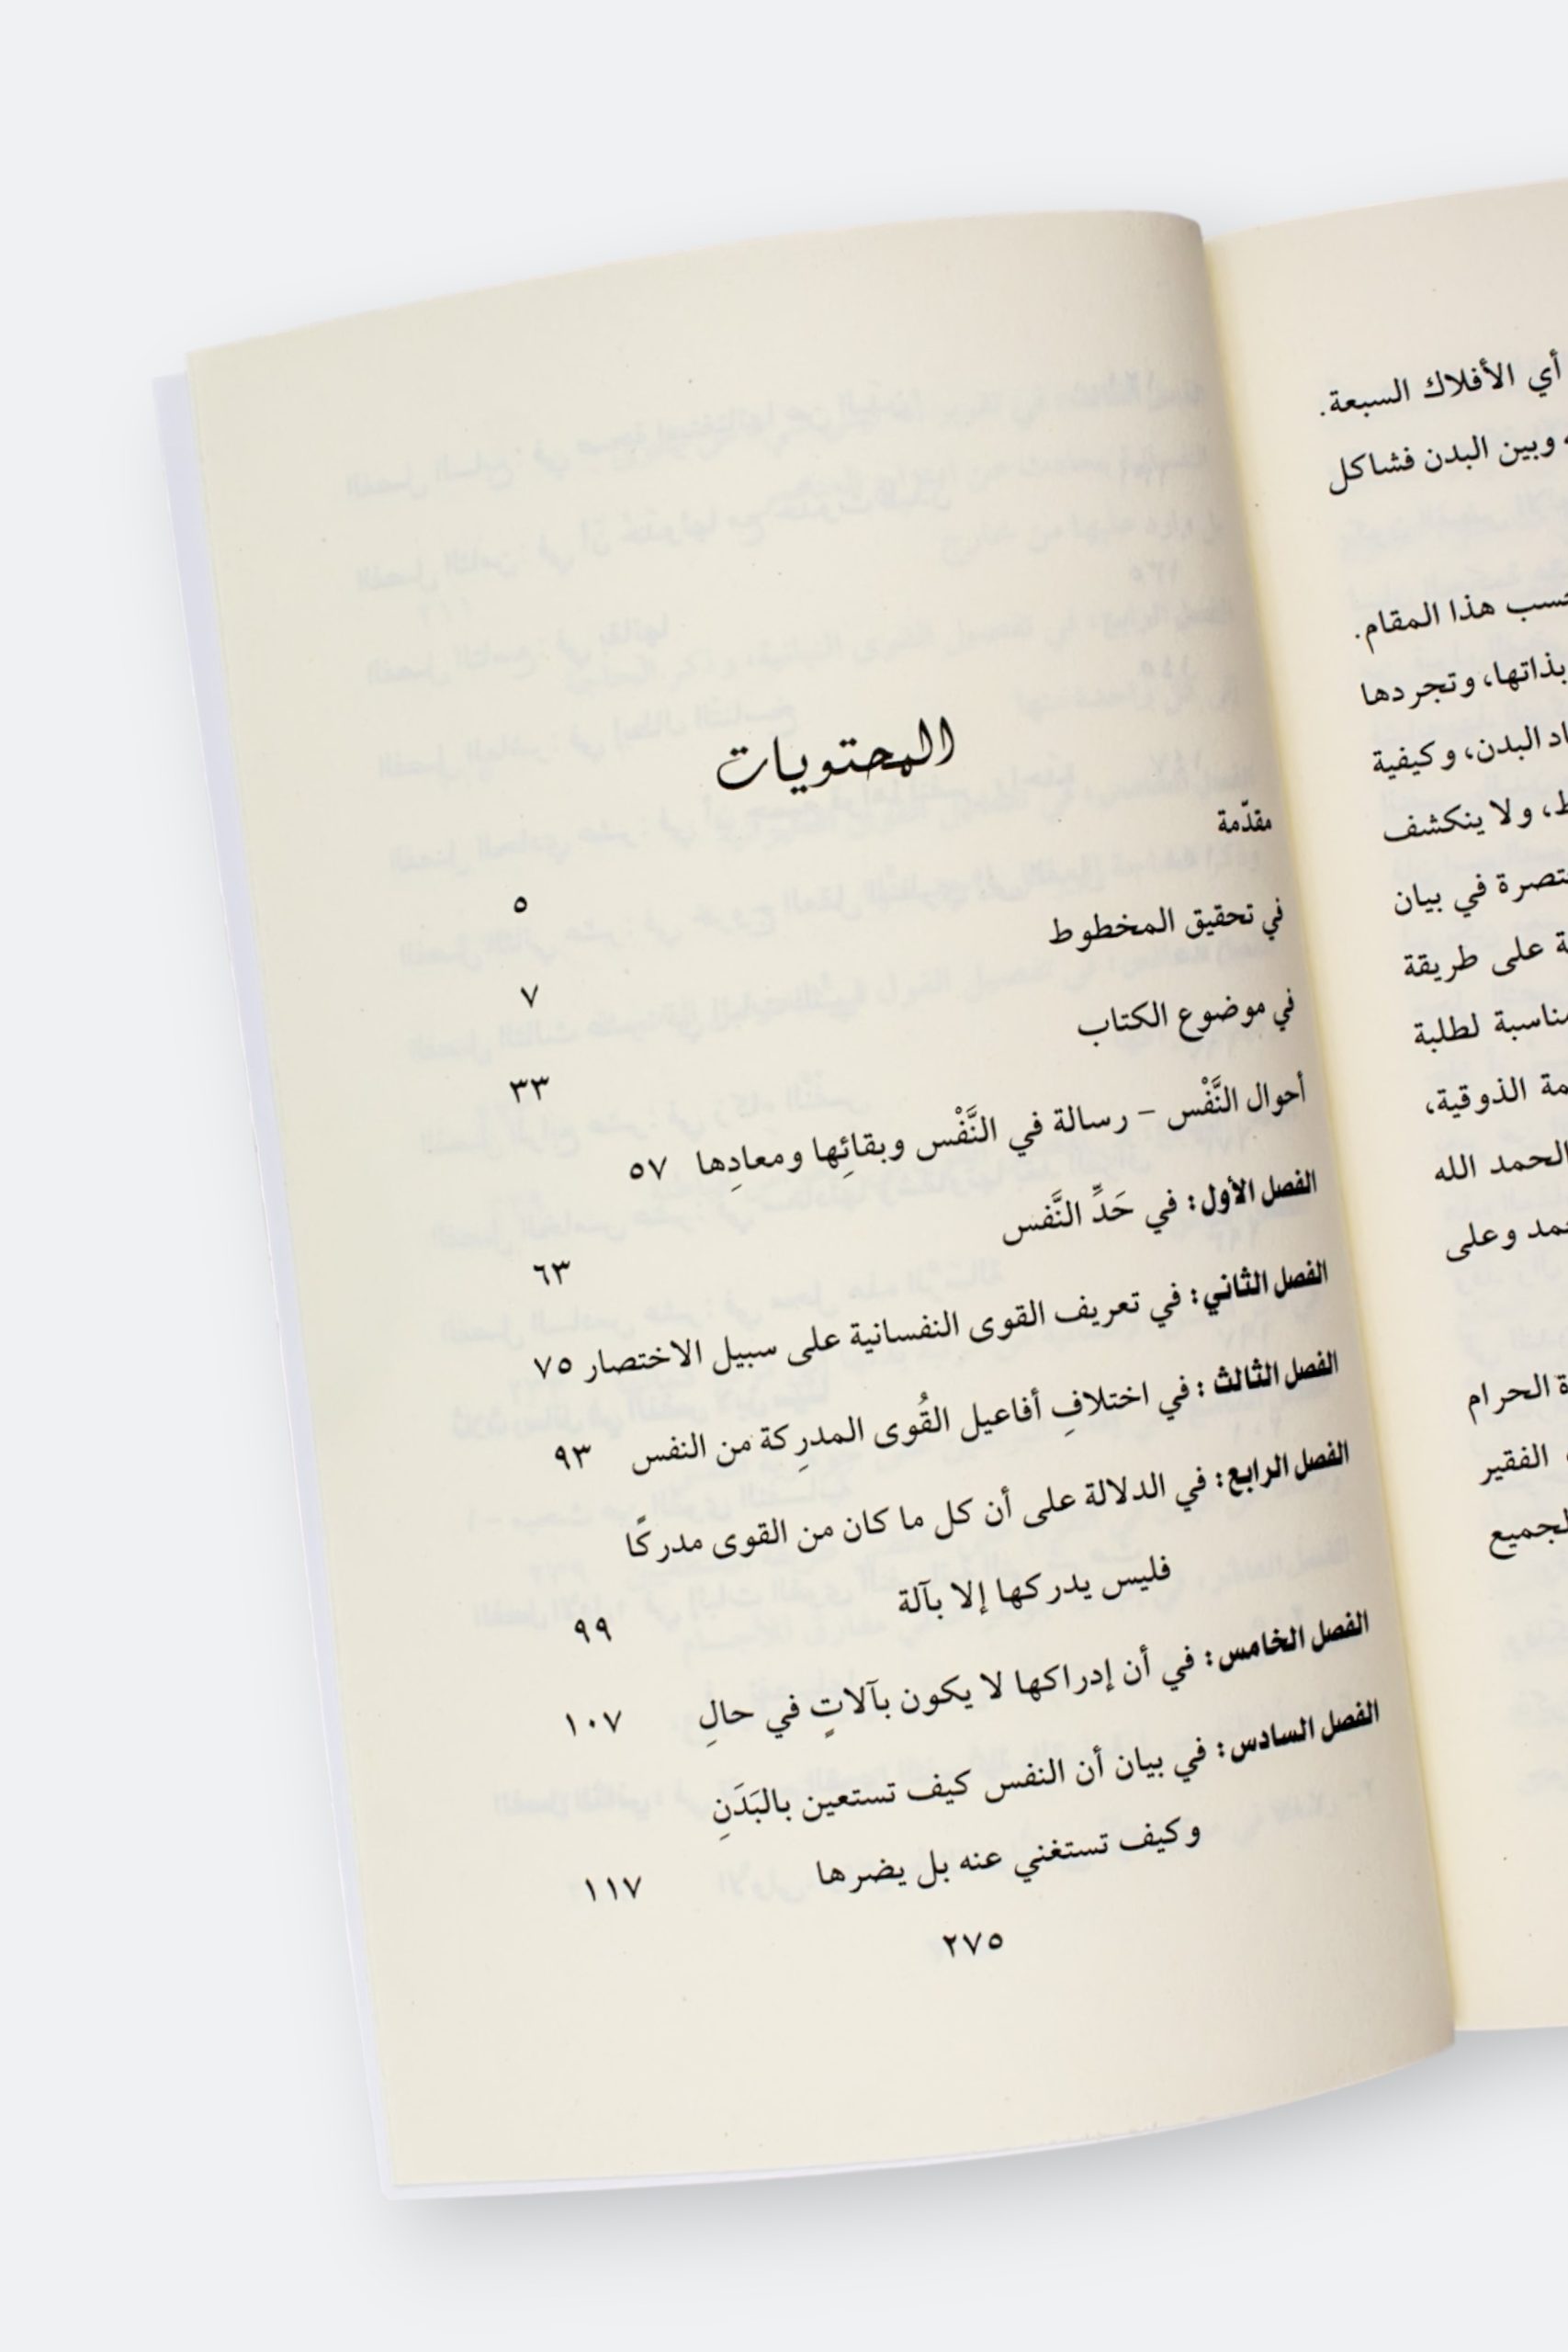 أي الأفلاك السبعة.
وبين البدن فشاكل
هذا المقام.
بذاتها، وتجردها
البدن، وكيفية
ولا ينكشف
في بيان
على طريقة
لطلبة
الذوقية،
الحمد الله
وعلى
الحرام
الفقير
المحتويات
مقدّمة ٥
في تحقيق المخطوط ٧
في موضوع الكتاب ٣٣
أحوال النَّفْس – رسالة في النَّفْس وبقائِها ومعادِها ٥٧
الفصل الأول: في حَدِّ النَّفس ٦٣
الفصل الثاني: في تعريف القوى النفسانية على سبيل الاختصار ٧٥
الفصل الثالث: في اختلافِ أفاعيل القُوى المدرِكة من النفس ٩٣
الفصل الرابع: في الدلالة على أن كل ما كان من القوى مدركًا
فليس يدركها إلا بآلة ٩٩
الفصل الخامس: في أن إدراكها لا يكون بآلاتٍ في حالِ ١٠٧
الفصل السادس: في بيان أن النفس كيف تستعين بالبَدَنِ
وكيف تستغني عنه بل يضرها ١١٧
٢٧٥